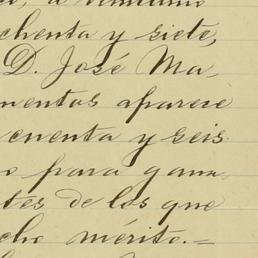 chenta y siete,
D. José Ma-
mentos aparece
cuenta y seis
o para gana-
tes de los que
cho mérito.=